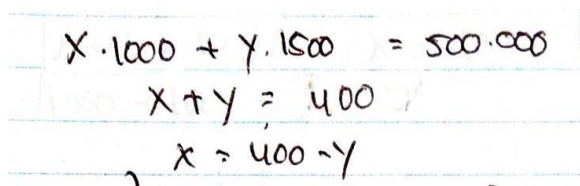 X.1000 + Y.1500 = 500.000
X + Y = 400
X = 400 - Y